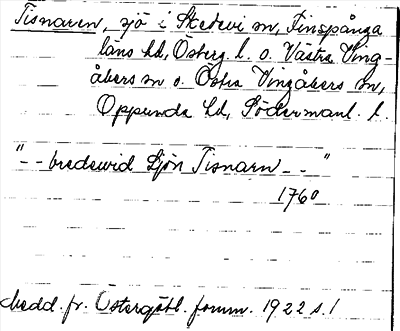 Tisnaren, sjö i Skedevi sn, Finspånga
läns hd, Österg. l. o. Västra Ving-
åkers sn o. Östra Vingåkers sn,
Oppunda hd, Södermanl. l.
"-- bredewid Sjön Tisnarn -- "
1760
Medd. fr. Östergötl. fornm. 1922 s. 1